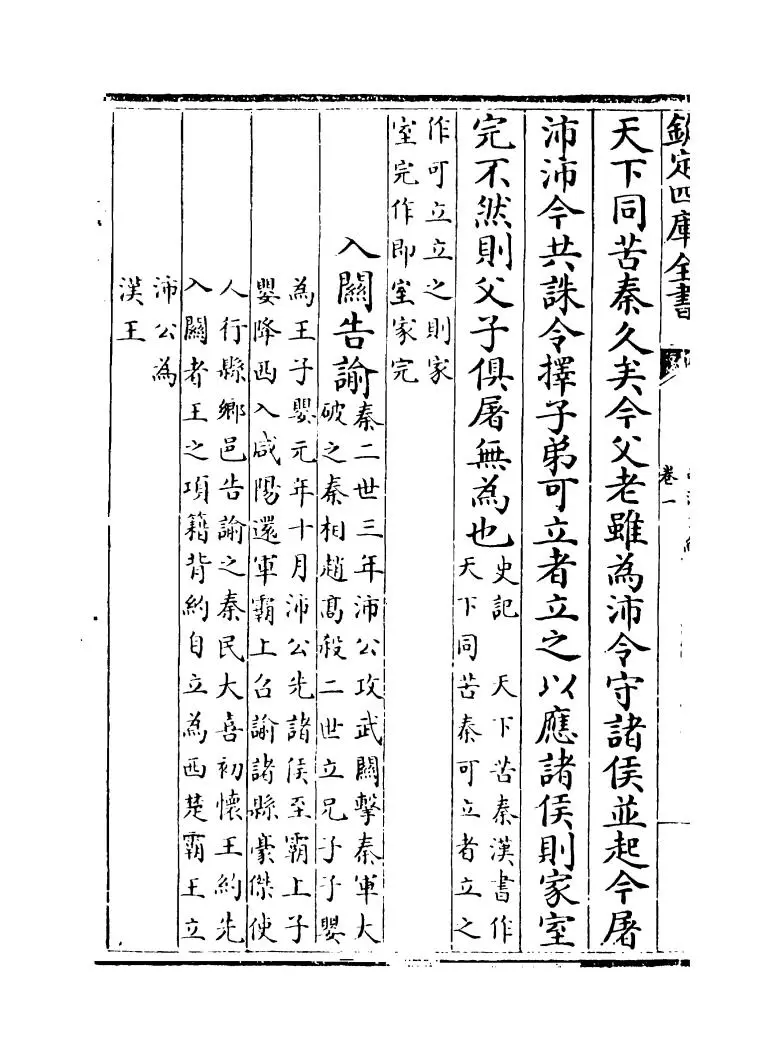 欽定四庫全書
卷一
天下同苦秦久矣今父老雖為沛令守諸侯並起今屠
沛沛今共誅令擇子弟可立者立之以應諸侯則家室
完不然則父子俱屠無為也
史記　天下苦秦漢書作
天下同苦秦可立者立之
作可立立之則家
室完作即室家完
入關告諭
秦二世三年沛公攻武關擊秦軍大
破之秦相趙髙殺二世立兄子子嬰
為王子嬰元年十月沛公先諸侯至霸上子
嬰降西入咸陽還軍霸上召諭諸縣豪傑使
人行縣鄉邑告諭之秦民大喜初懷王約先
入關者王之項籍背約自立為西楚霸王立
沛公為
漢王